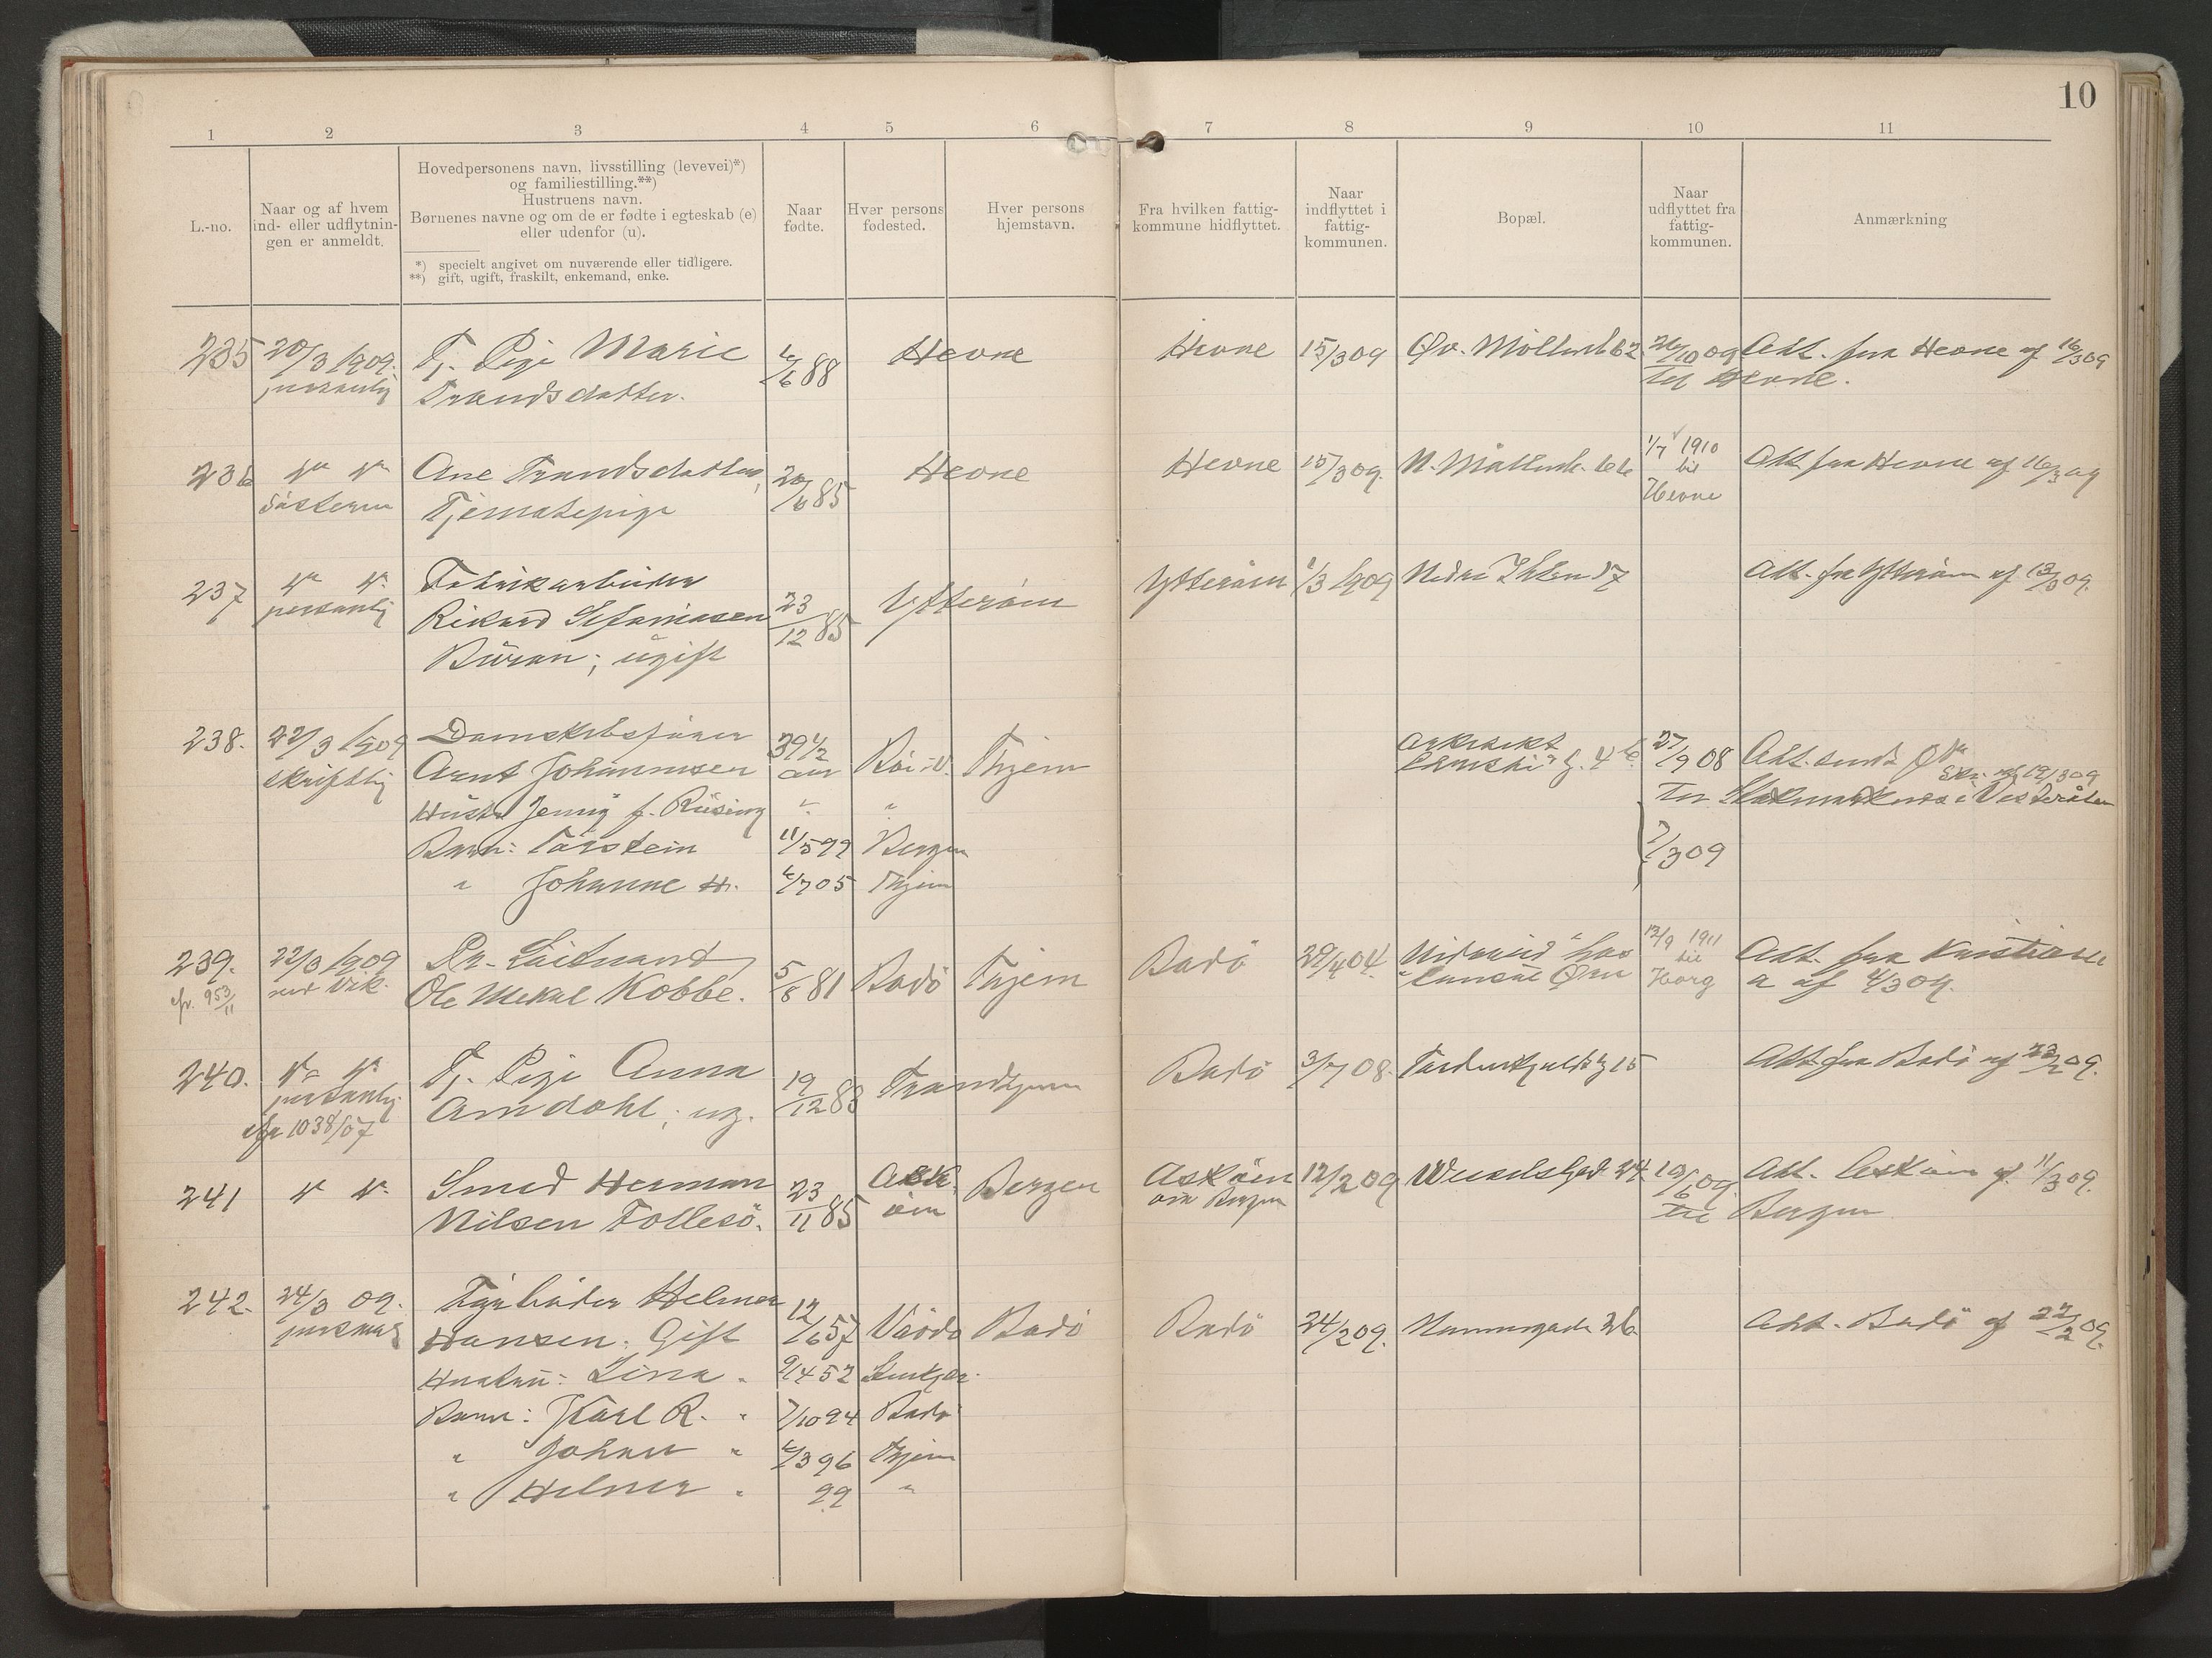 10
1 2 3 4 5 6 7 8 9 10 11
L.-no.
Naar og af hvem
ind- eller udflytnin-
gen er anmeldt.
Hovedpersonens navn, livsstilling (levevei)*)
og familiestilling.**)
Hustruens navn.
Børnenes navne og om de er fødte i egteskab (e)
eller udenfor (u).
*) specielt angivet om nuværende eller tidligere.
**) gift, ugift, fraskilt, enkemand, enke.
Naar
fødte.
Hver persons
fødested.
Hver persons
hjemstavn.
Fra hvilken fattig-
kommune hidflyttet.
Naar
indflyttet i
fattig-
kommunen.
Bopæl.
Naar
udflyttet fra
fattig-
kommunen.
Anmærkning
235 20/3 1909. Tj. Pige Marie 6/6 88 Hevne Hevne 15/3 09 Øv. Møllenb 62 26/10 09 Att. fra Hevne af 16/3 09
personlig Trondsdatter. til Hevne.
236 Ane Trondsdatter, 20/6 85 Hevne Hevne 15/3 09. N. Møllenb. 66 1/7 1910 Att. fra Hevne af 16/3 09
Søsteren Tjenestepige til
Hevne
237 Fabrikarbeider Ytterøen 1/3 1909 Nedre Ihlen 57 Att. fra Ytterøen af 13/3 09.
personlig Rikard 23/12 85 Ytterøen
Buran; ugift
238. 22/3 1909 Damskibsfører 39 1/2 27/9 08 Att. sendt
skriftlig Arnt Johannesen aar Thjem
Hustru Jenny f. Rüsing " "
Barn: Torstein 11/5 99 Bergen 7/3 09
" Johanne H. 6/7 05 Thjem
239. 22/3 1909 Pr. Løitnant Bodø 29/4 04 12/9 1911 Att. fra Kristians
ved Vik. Ole Mekal Kobbe. 5/8 81 Bodø Thjem til
cfr. 953/11 Horg a af 4/3 09.
240. Tj. Pige Anna 19/12 88 Trondhjem Bodø 3/7 08. 15 Att. fra Bodø af 23/2 09.
personlig Amdahl; ug.
cfr 1038/07
241 Smed Herman 23/11 85 Ask- Bergen Askøen 12/2 09 24 19/6 09. Att. Askøen af 11/3 09.
Nilsen Follesø. øen om Bergen til Bergen
242. 24/3 09. Helmer 12/6 57 Bodø 24/2 09. Nunnegaden 26 Att. Bodø af 22/2 09.
personlig Hansen: Gift Vardø Bodø
Hustru: Lina " 9/4 52
Barn: Karl R. " 7/10 94 Bodø
" Johan " 6/3 96 Thjem
" Helmer " 99 "